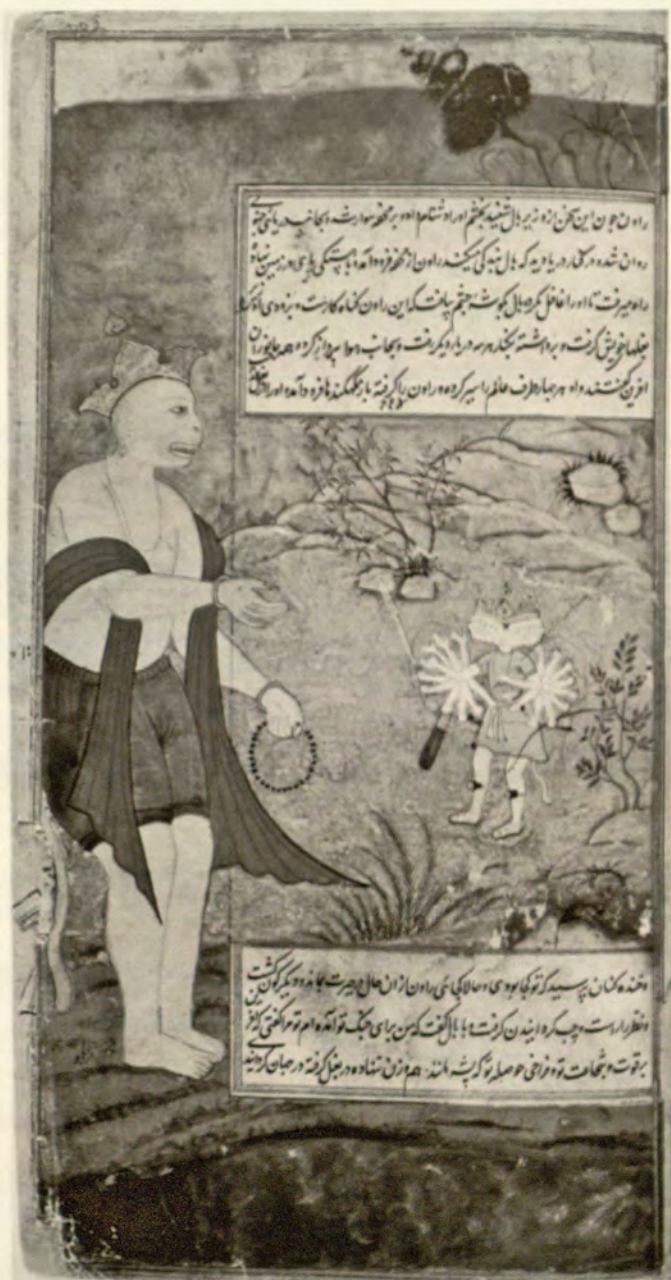 راون چون این سخن از وزیر بال شنید بخشم او را دشنام داد و بر محفه سوار شد و بجانب دریای جنوبی
روان شد در کنار دریا دید که بال بندگی میکند راون از محفه فرود آمد و باهستگی پای در زمین نهاد
راه میرفت تا او را غافل بگیرد بال بگوشه چشم یافت که این راون گناه کارست و بزودی
بغلهای خویش گرفت و برداشته بکنار هر سه دریا دیگر رفت و بجانب هوا پرواز کرد و همه جانوران
افرین گفتند و او هر چهار طرف عالم را سیر کرده و راون را گرفته باز فرود آمد و او را از بغل
و خنده کنان پرسید که تو کجا بودی و حالا کجا می راون از ان حال در حیرت بماند و دیگر گون گشت
و نظر راست و چپ کرده دیدن گرفت و با بال گفت که من برای جنگ تو آمده ام تو مرا گفتی که
بر قوت و شجاعت تو و فراخی حوصله تو که پشه مانند هم وزن نهاده در بغل گرفته در جهان گردانید